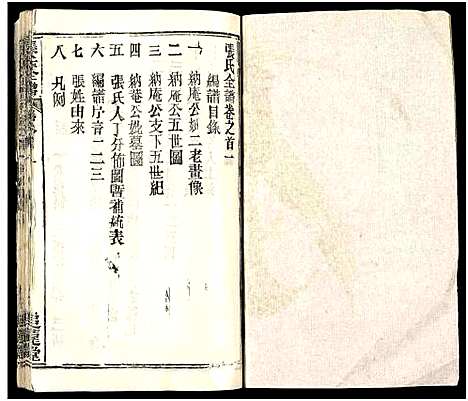 張氏全譜卷之首一
編譜目錄
一 納庵公妣二老畫像
二 納庵公支五世圖
三 納庵公支下五世紀
四 納庵公妣墓圖
五 張氏人丁分佈圖暫補統表
六 編譜序言一二三
七 張姓由來
八 凡例
張氏全譜